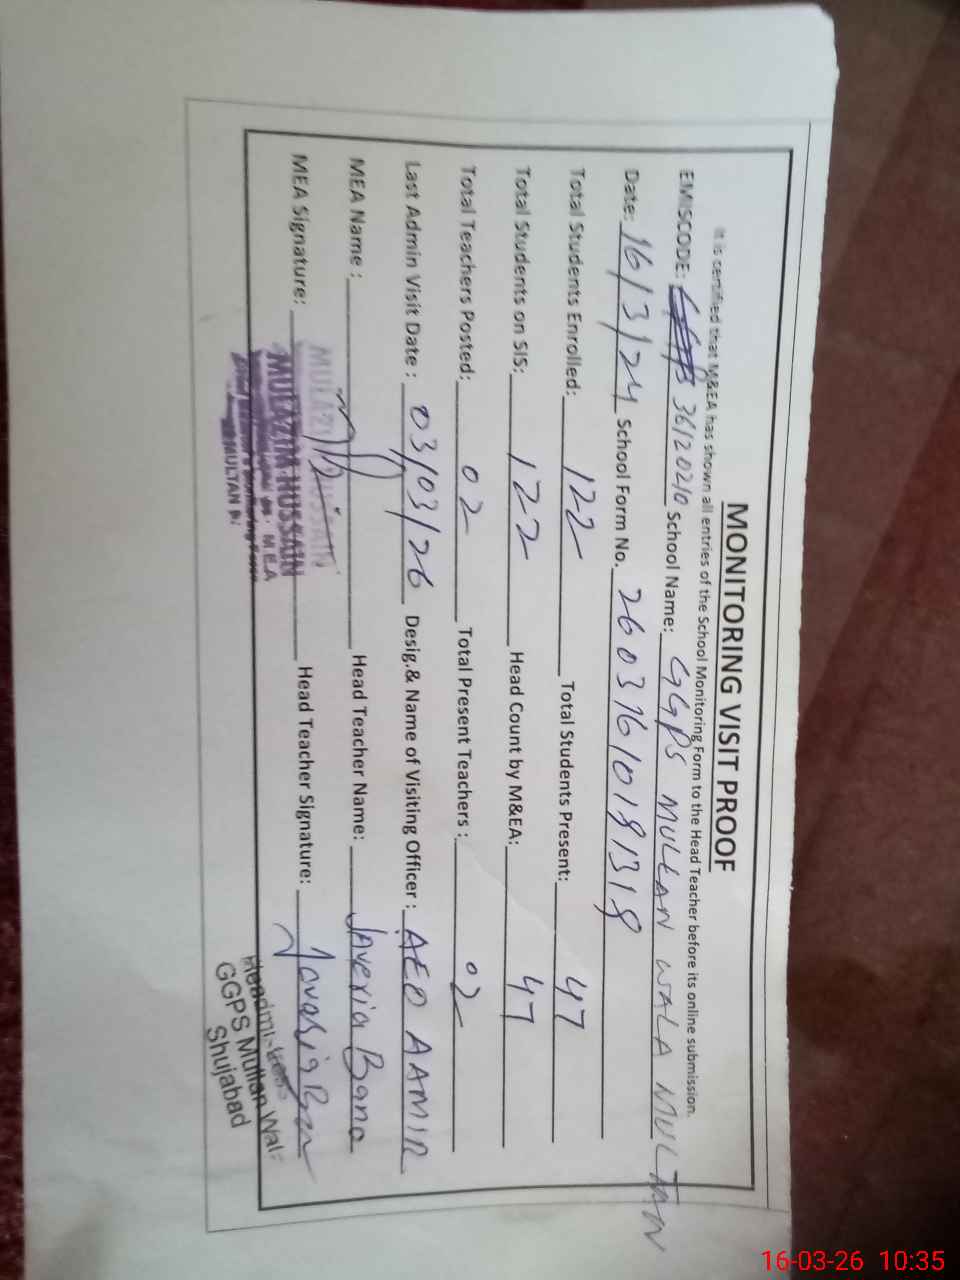 MONITORING VISIT PROOF
It is certified that M&EA has shown all entries of the School Monitoring Form to the Head Teacher before its online submission.
EMISCODE: 36120210 School Name: GGPS MULLAN WALA MULTAN
Date: 16/3/24 School Form No. 26031610181318
Total Students Enrolled: 122 Total Students Present: 47
Total Students on SIS: 122 Head Count by M&EA: 47
Total Teachers Posted: 02 Total Present Teachers : 02
Last Admin Visit Date : 03/03/26 Desig.& Name of Visiting Officer : AEO AAMIR
MEA Name : Head Teacher Name: Javeria Bano
MEA Signature: Head Teacher Signature:
MULAZIM HUSSAIN
MEA
MULTAN
GGPS Mullan Wal
Shujabad
16-03-26 10:35